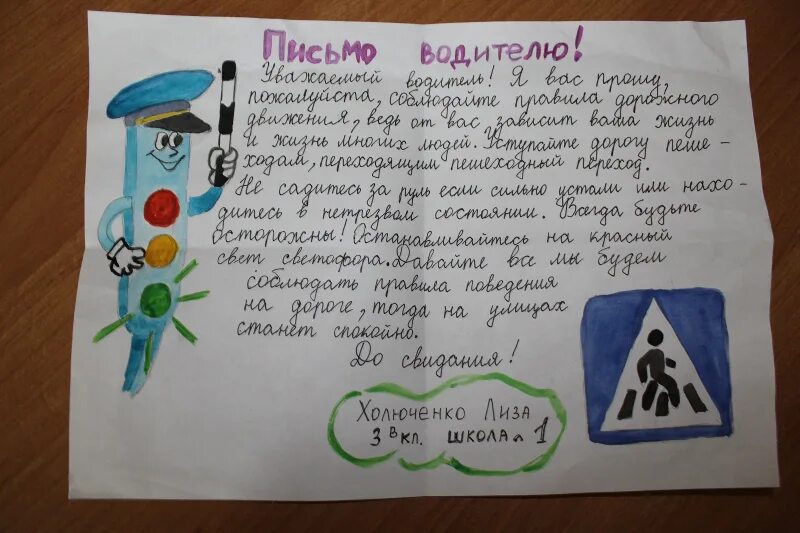 Письмо водителю!
Уважаемый водитель! Я вас прошу,
пожалуйста, соблюдайте правила дорожного
движения, ведь от вас, зависит ваша жизнь
и жизнь многих людей. Уступайте дорогу пеше-
ходам, переходящим пешеходный переход.
Не садитесь за руль если сильно устали или нахо-
дитесь в нетрезвом состоянии. Всегда будьте
осторожны! Останавливайтесь на красный
свет светофора. Давайте все мы будем
соблюдать правила поведения
на дороге, тогда на улицах
станет спокойно.
До свидания!
Холюченко Лиза
3 в кл. школа № 1